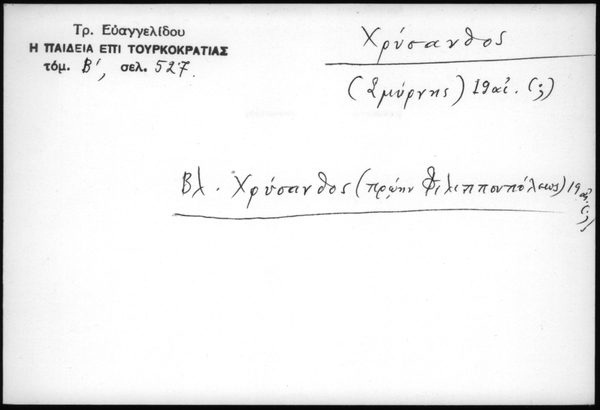 Τρ. Εὐαγγελίδου
Η ΠΑΙΔΕΙΑ ΕΠΙ ΤΟΥΡΚΟΚΡΑΤΙΑΣ
τόμ. Β', σελ. 527.
Χρύσανθος
(Σμύρνης) 19 αἰ. (;)
Βλ. Χρύσανθος (πρώην Φιλιππουπόλεως) 19 αἰ. (;)